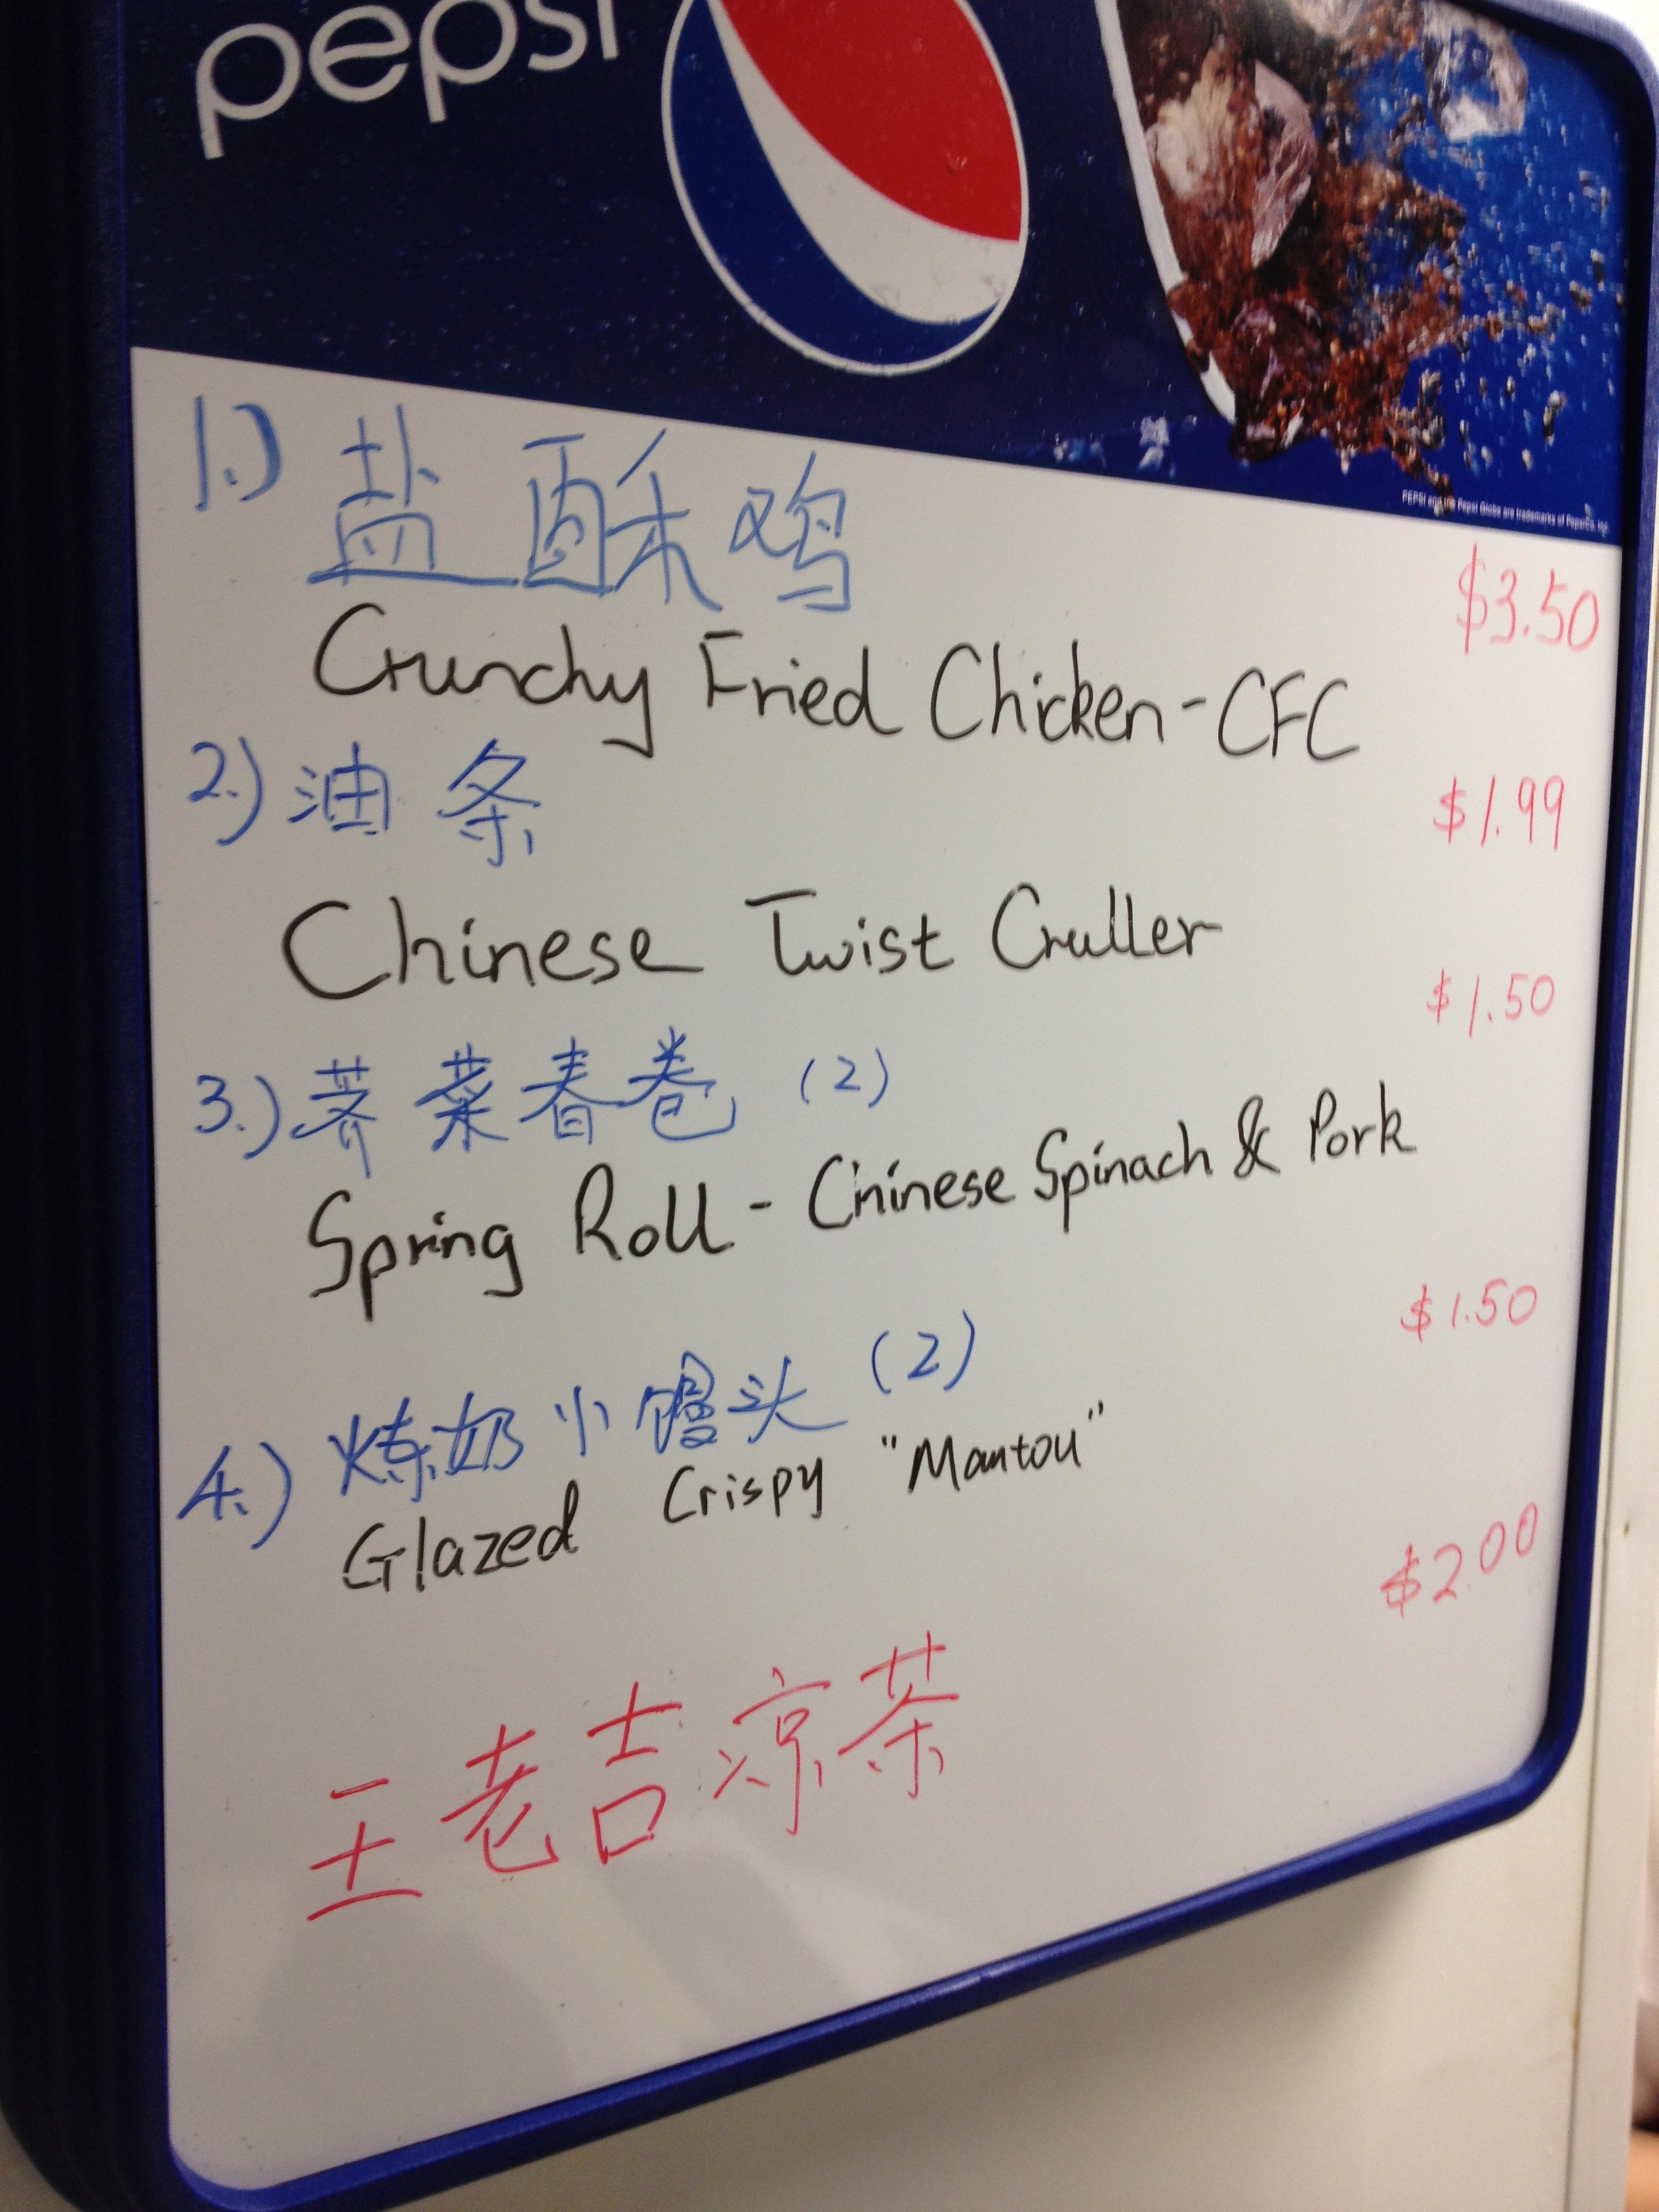 pepsi
PEPSI and the Pepsi Globe are trademarks of PepsiCo, Inc.
1.) 盐酥鸡
$3.50
Crunchy Fried Chicken-CFC
2.) 油条
$1.99
Chinese Twist Cruller
$1.50
3.) 荠菜春卷 (2)
Spring Roll - Chinese Spinach & Pork
$1.50
4.) 炼奶小馒头 (2)
Glazed Crispy "Mantou"
$2.00
王老吉凉茶